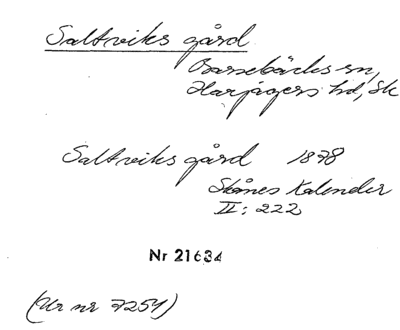 Saltviks gård
Barsebäcks sn,
Harjagers hd, Sk
Saltviks gård 1878
Skånes Kalender
II: 222
Nr 21634
(Ur nr 7251)